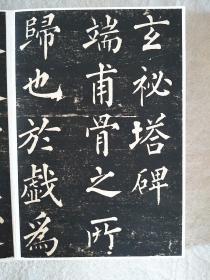 玄祕塔碑
端甫骨之所
歸也於戲為